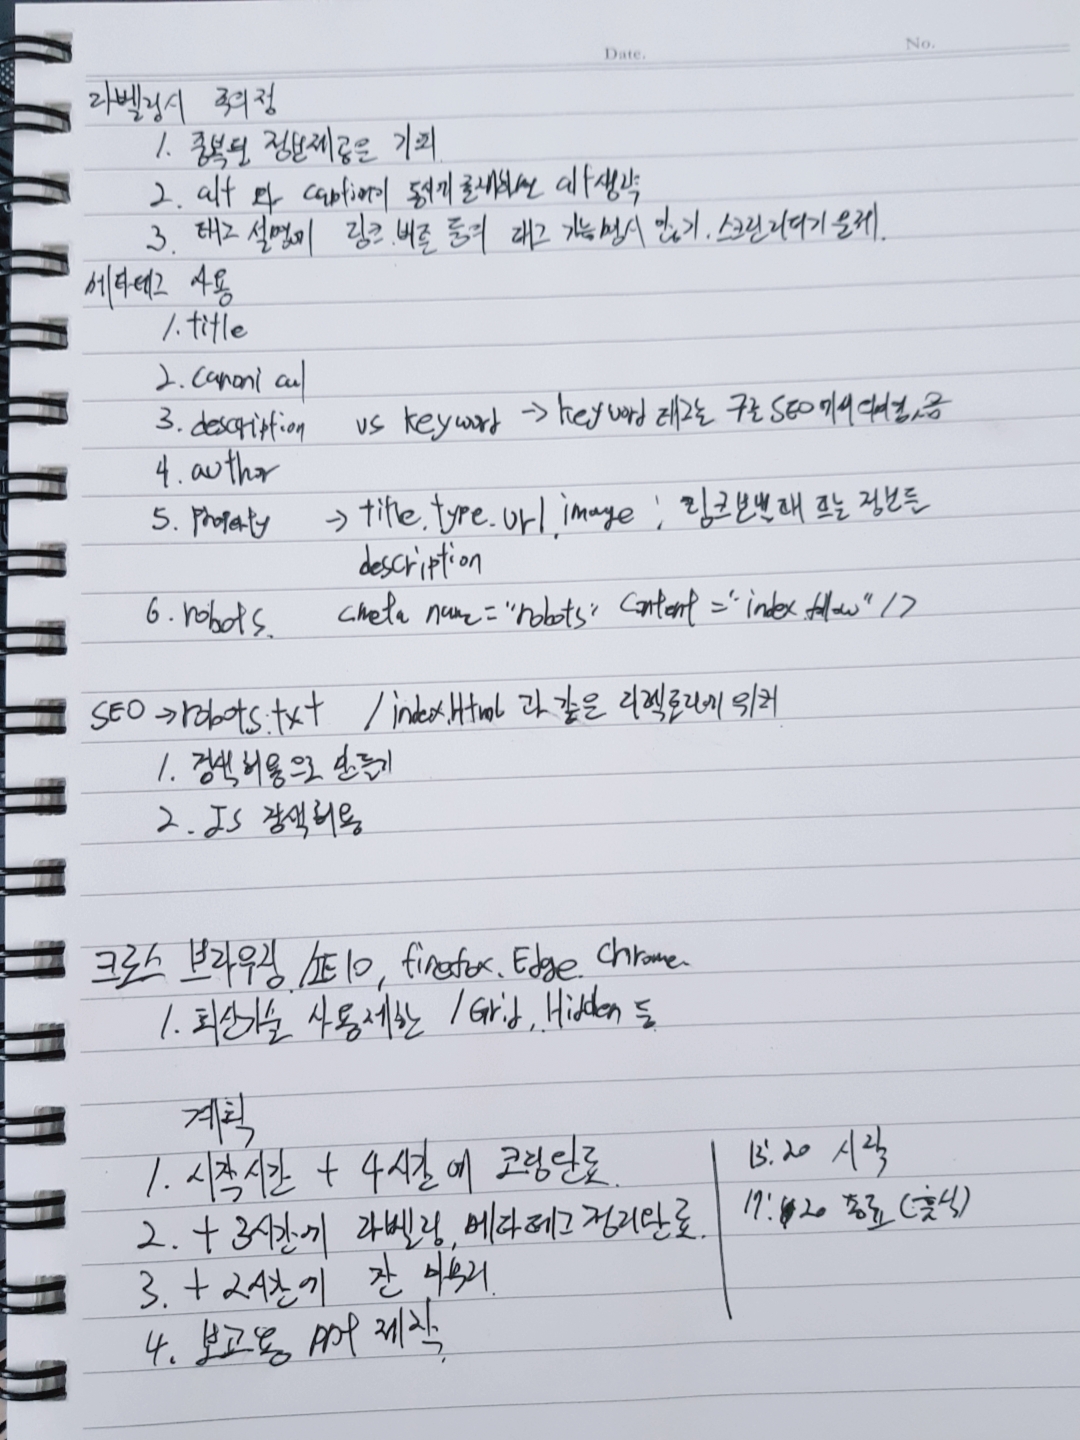 Date. No.
라벨링시 주의점
1. 중복된 정보제공은 기회
2. alt 와 caption이 동시에 존재하면 alt생략
3. 태그 설명에 링크.버튼 등의 태그 기능명시 않기.스크린리더기 문제.
메타태그 사용
1. title
2. canonical
3. description vs keyword → keyword 태그는 구글 SEO에서
4. author
5. property → title.type.url.image ; 링크보낼때 뜨는 정보들
description
6. robots. <meta name="robots" content="index.follow" />
SEO → robots.txt /index.html 과 같은 디렉토리에 위치
1. 검색허용으로 만들기
2. JS 검색허용
크로스 브라우징 /IE10, firefox. Edge. Chrome.
1. 최신기술 사용제한 /Grid, Hidden 등
계획
1. 시작시간 + 4시간에 코딩완료.
2. + 3시간에 라벨링, 메타태그 정리완료.
3. + 2시간에 잔 마무리.
4. 보고용 ppt 제작.
13:20 시작
17:20 종료 (휴식)